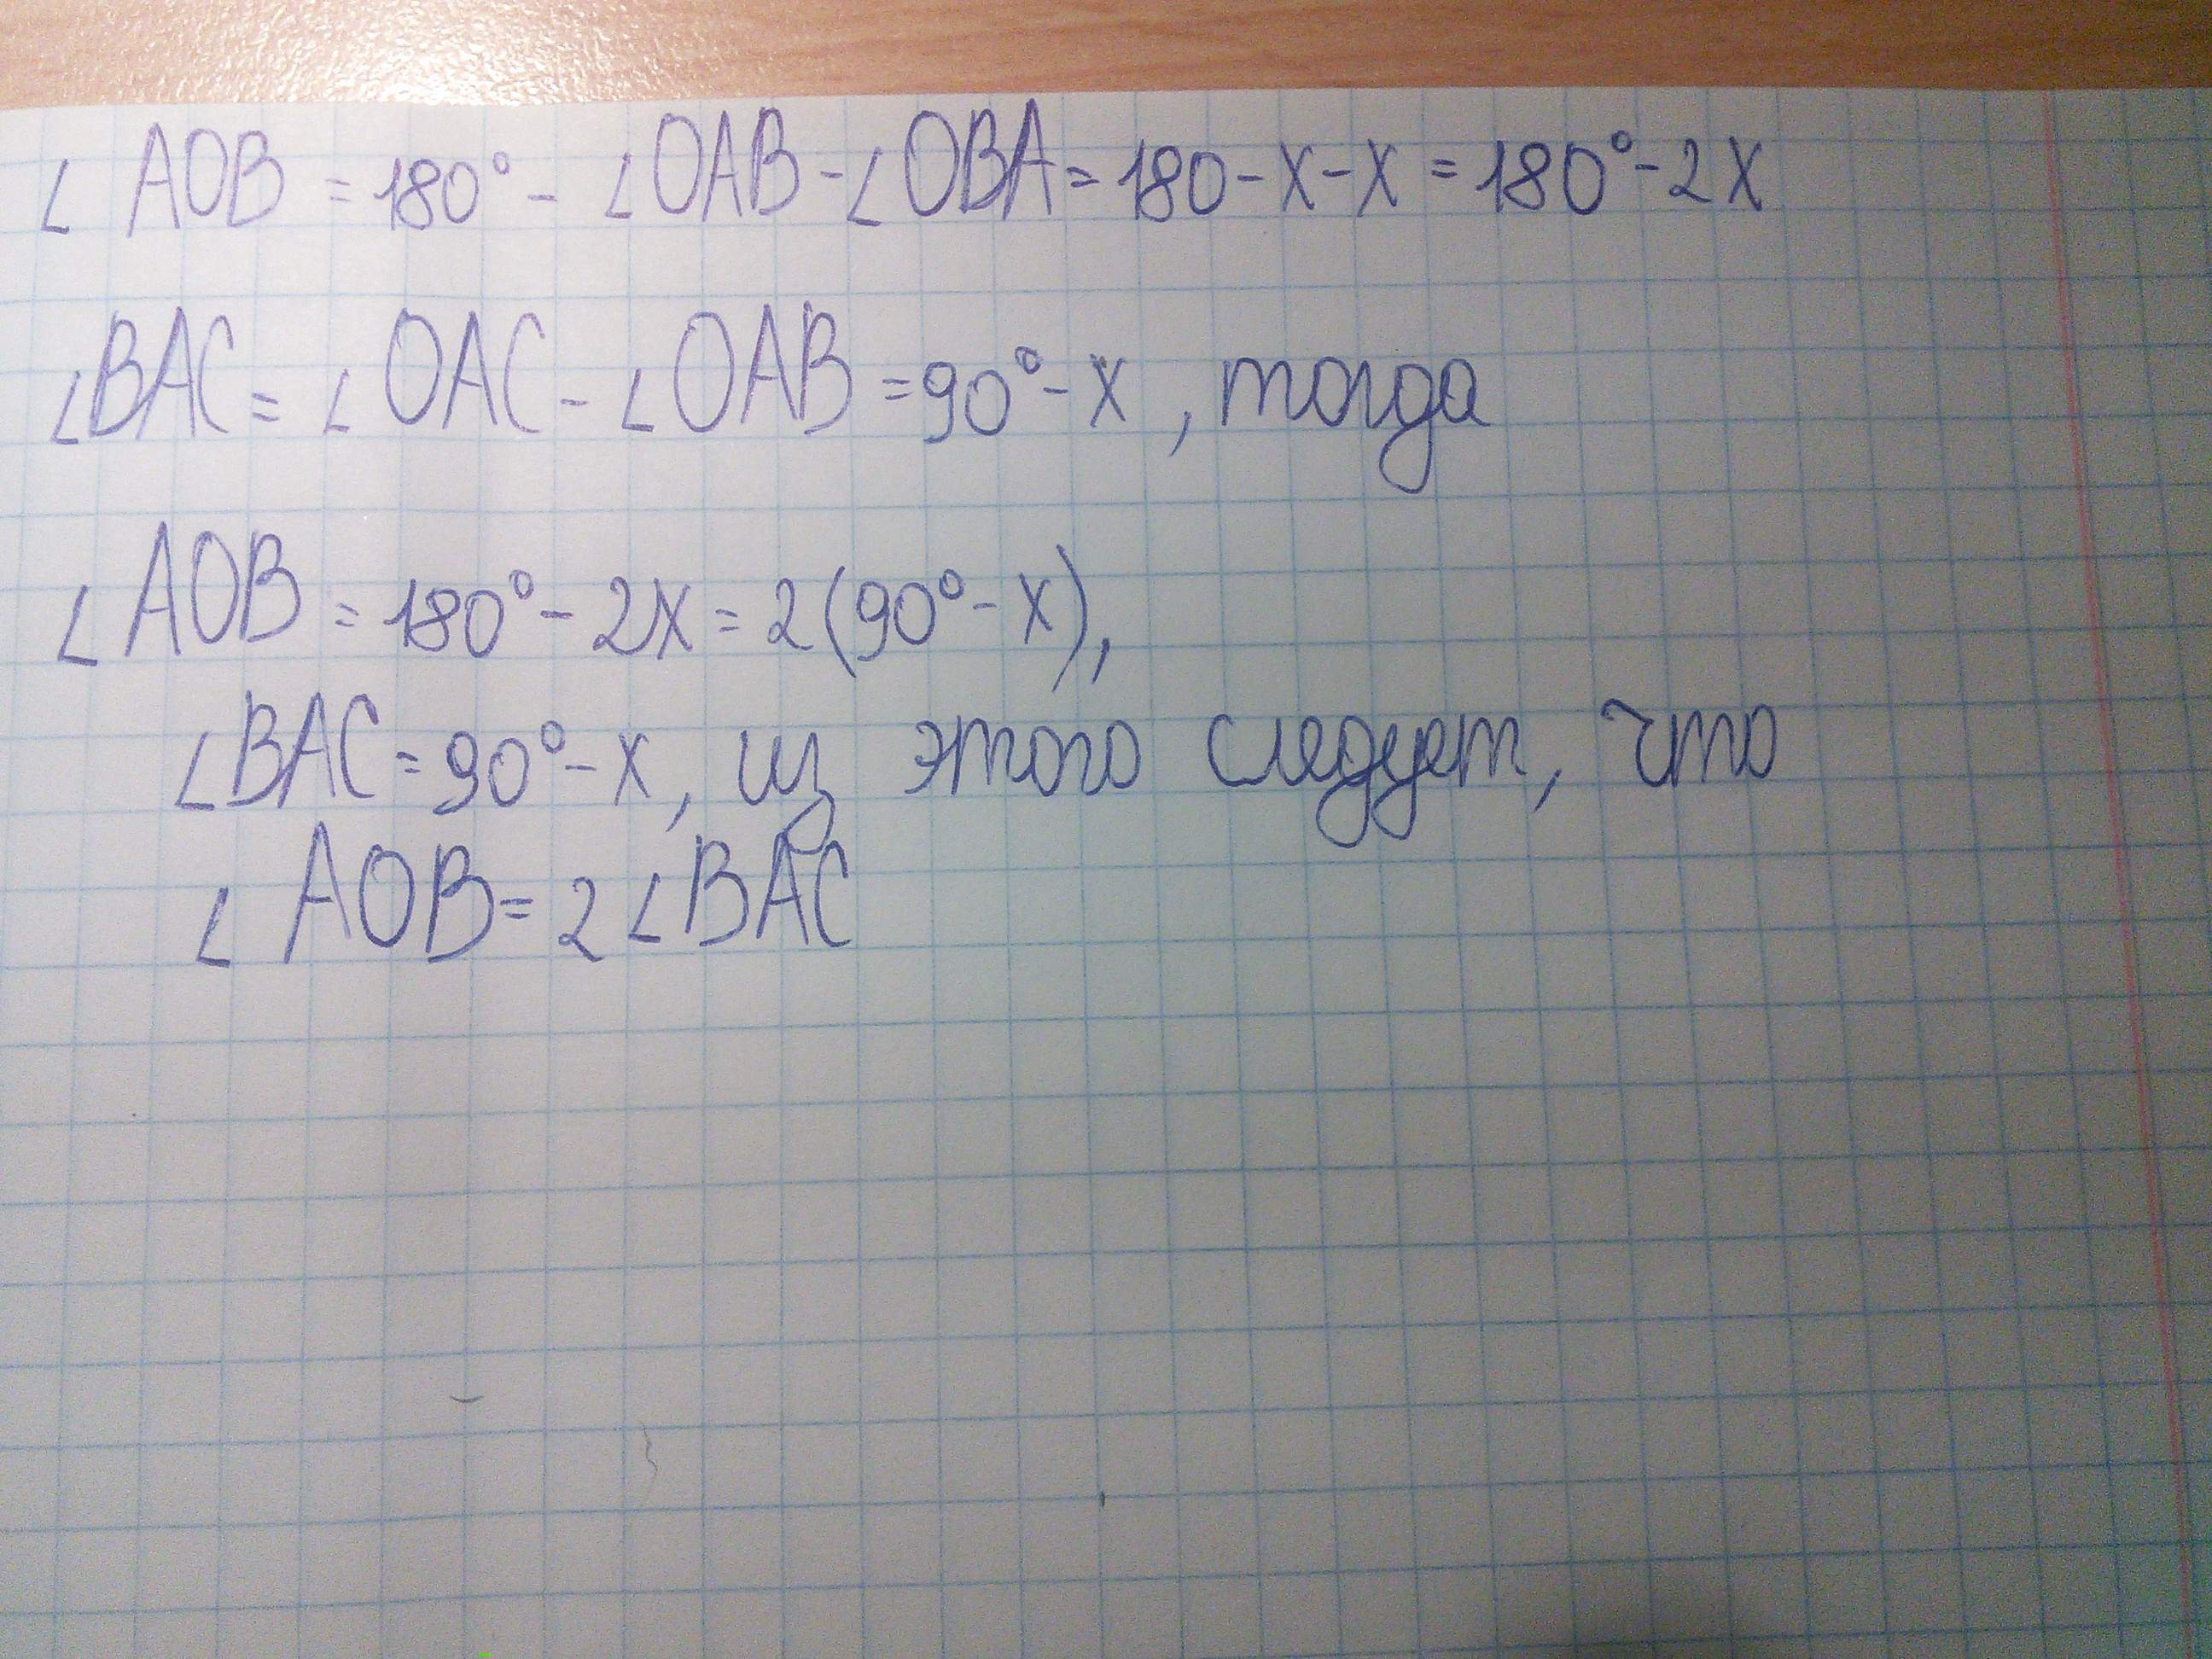 ∠AOB = 180° - ∠OAB - ∠OBA = 180 - x - x = 180° - 2x
∠BAC = ∠OAC - ∠OAB = 90° - x, тогда
∠AOB = 180° - 2x = 2(90° - x),
∠BAC = 90° - x, из этого следует, что
∠AOB = 2∠BAC